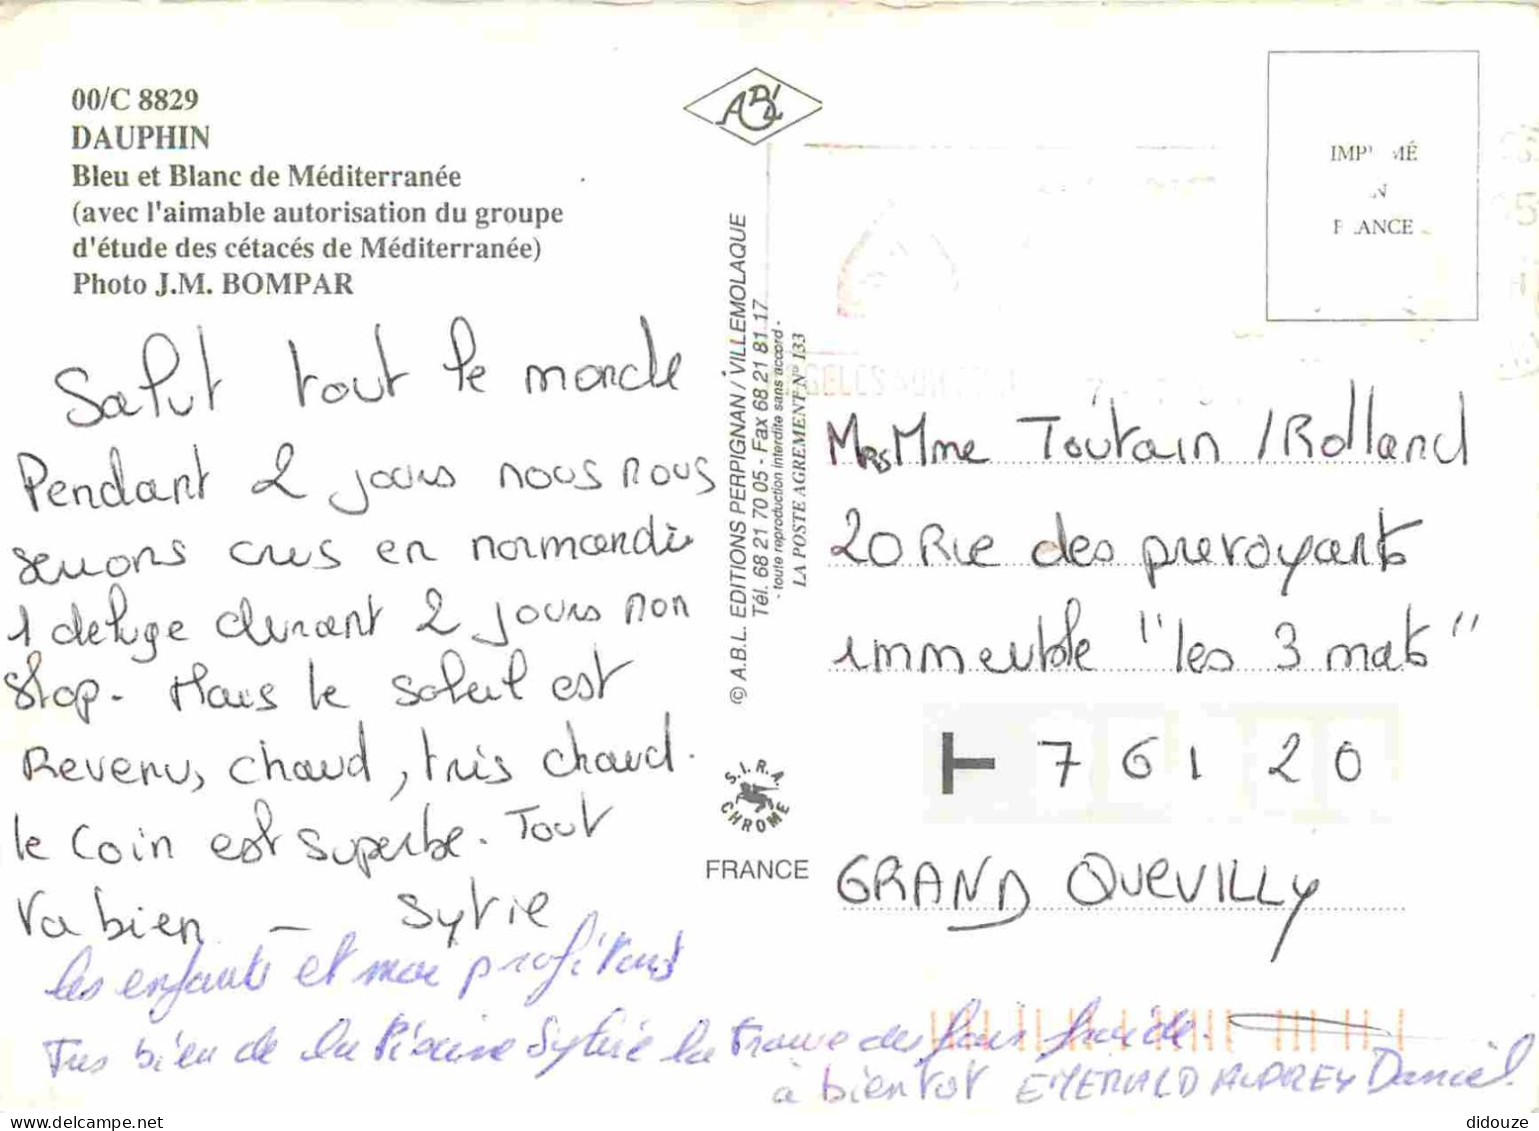 00/C 8829
DAUPHIN
Bleu et Blanc de Méditerranée
(avec l'aimable autorisation du groupe
d'étude des cétacés de Méditerranée)
Photo J.M. BOMPAR
Salut tout le monde
Pendant 2 jours nous nous
serions crus en normandie
1 deluge durant 2 jours non
Stop. Mais le soleil est
Revenu, chaud, tris chaud.
le coin est superbe. Tout
va bien _ Sylvie
les enfants et moi profitons
Tres bien de la Piscine Sylvie la trouve des fois froide.
à bientot EMERALD AUDREY Daniel.
ABL
© A.B.L. EDITIONS PERPIGNAN / VILLEMOLAQUE
Tél. 68 21 70 05 - Fax 68 21 81 17
- toute reproduction interdite sans accord -
LA POSTE AGREMENT N° 133
S.I.R.A.
CHROME
FRANCE
IMP MÉ
N
F ANCE
Mrs Mme Toutain / Rolland
20 Rue des prevoyants
immeuble "les 3 mats"
76120
GRAND QUEVILLY
didouze